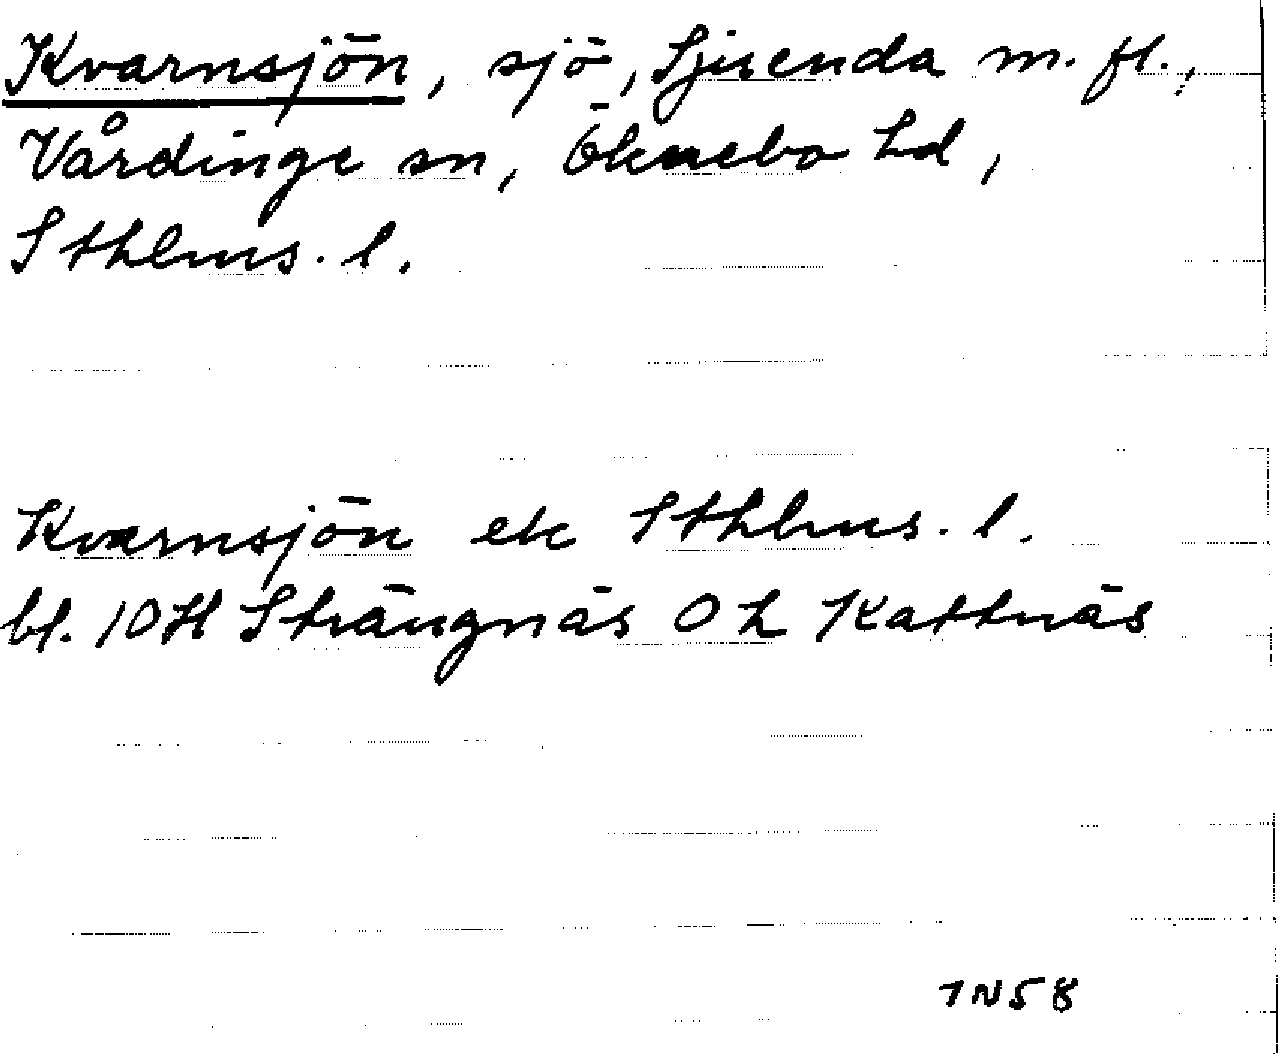 Kvarnsjön, sjö, Sjisenda m. fl.,
Vårdinge sn, Öknebo hd,
Sthlms. l.
Kvarnsjön ek Sthlms. l.
bl. 10H Strängnäs Oh Kattnäs
7N58